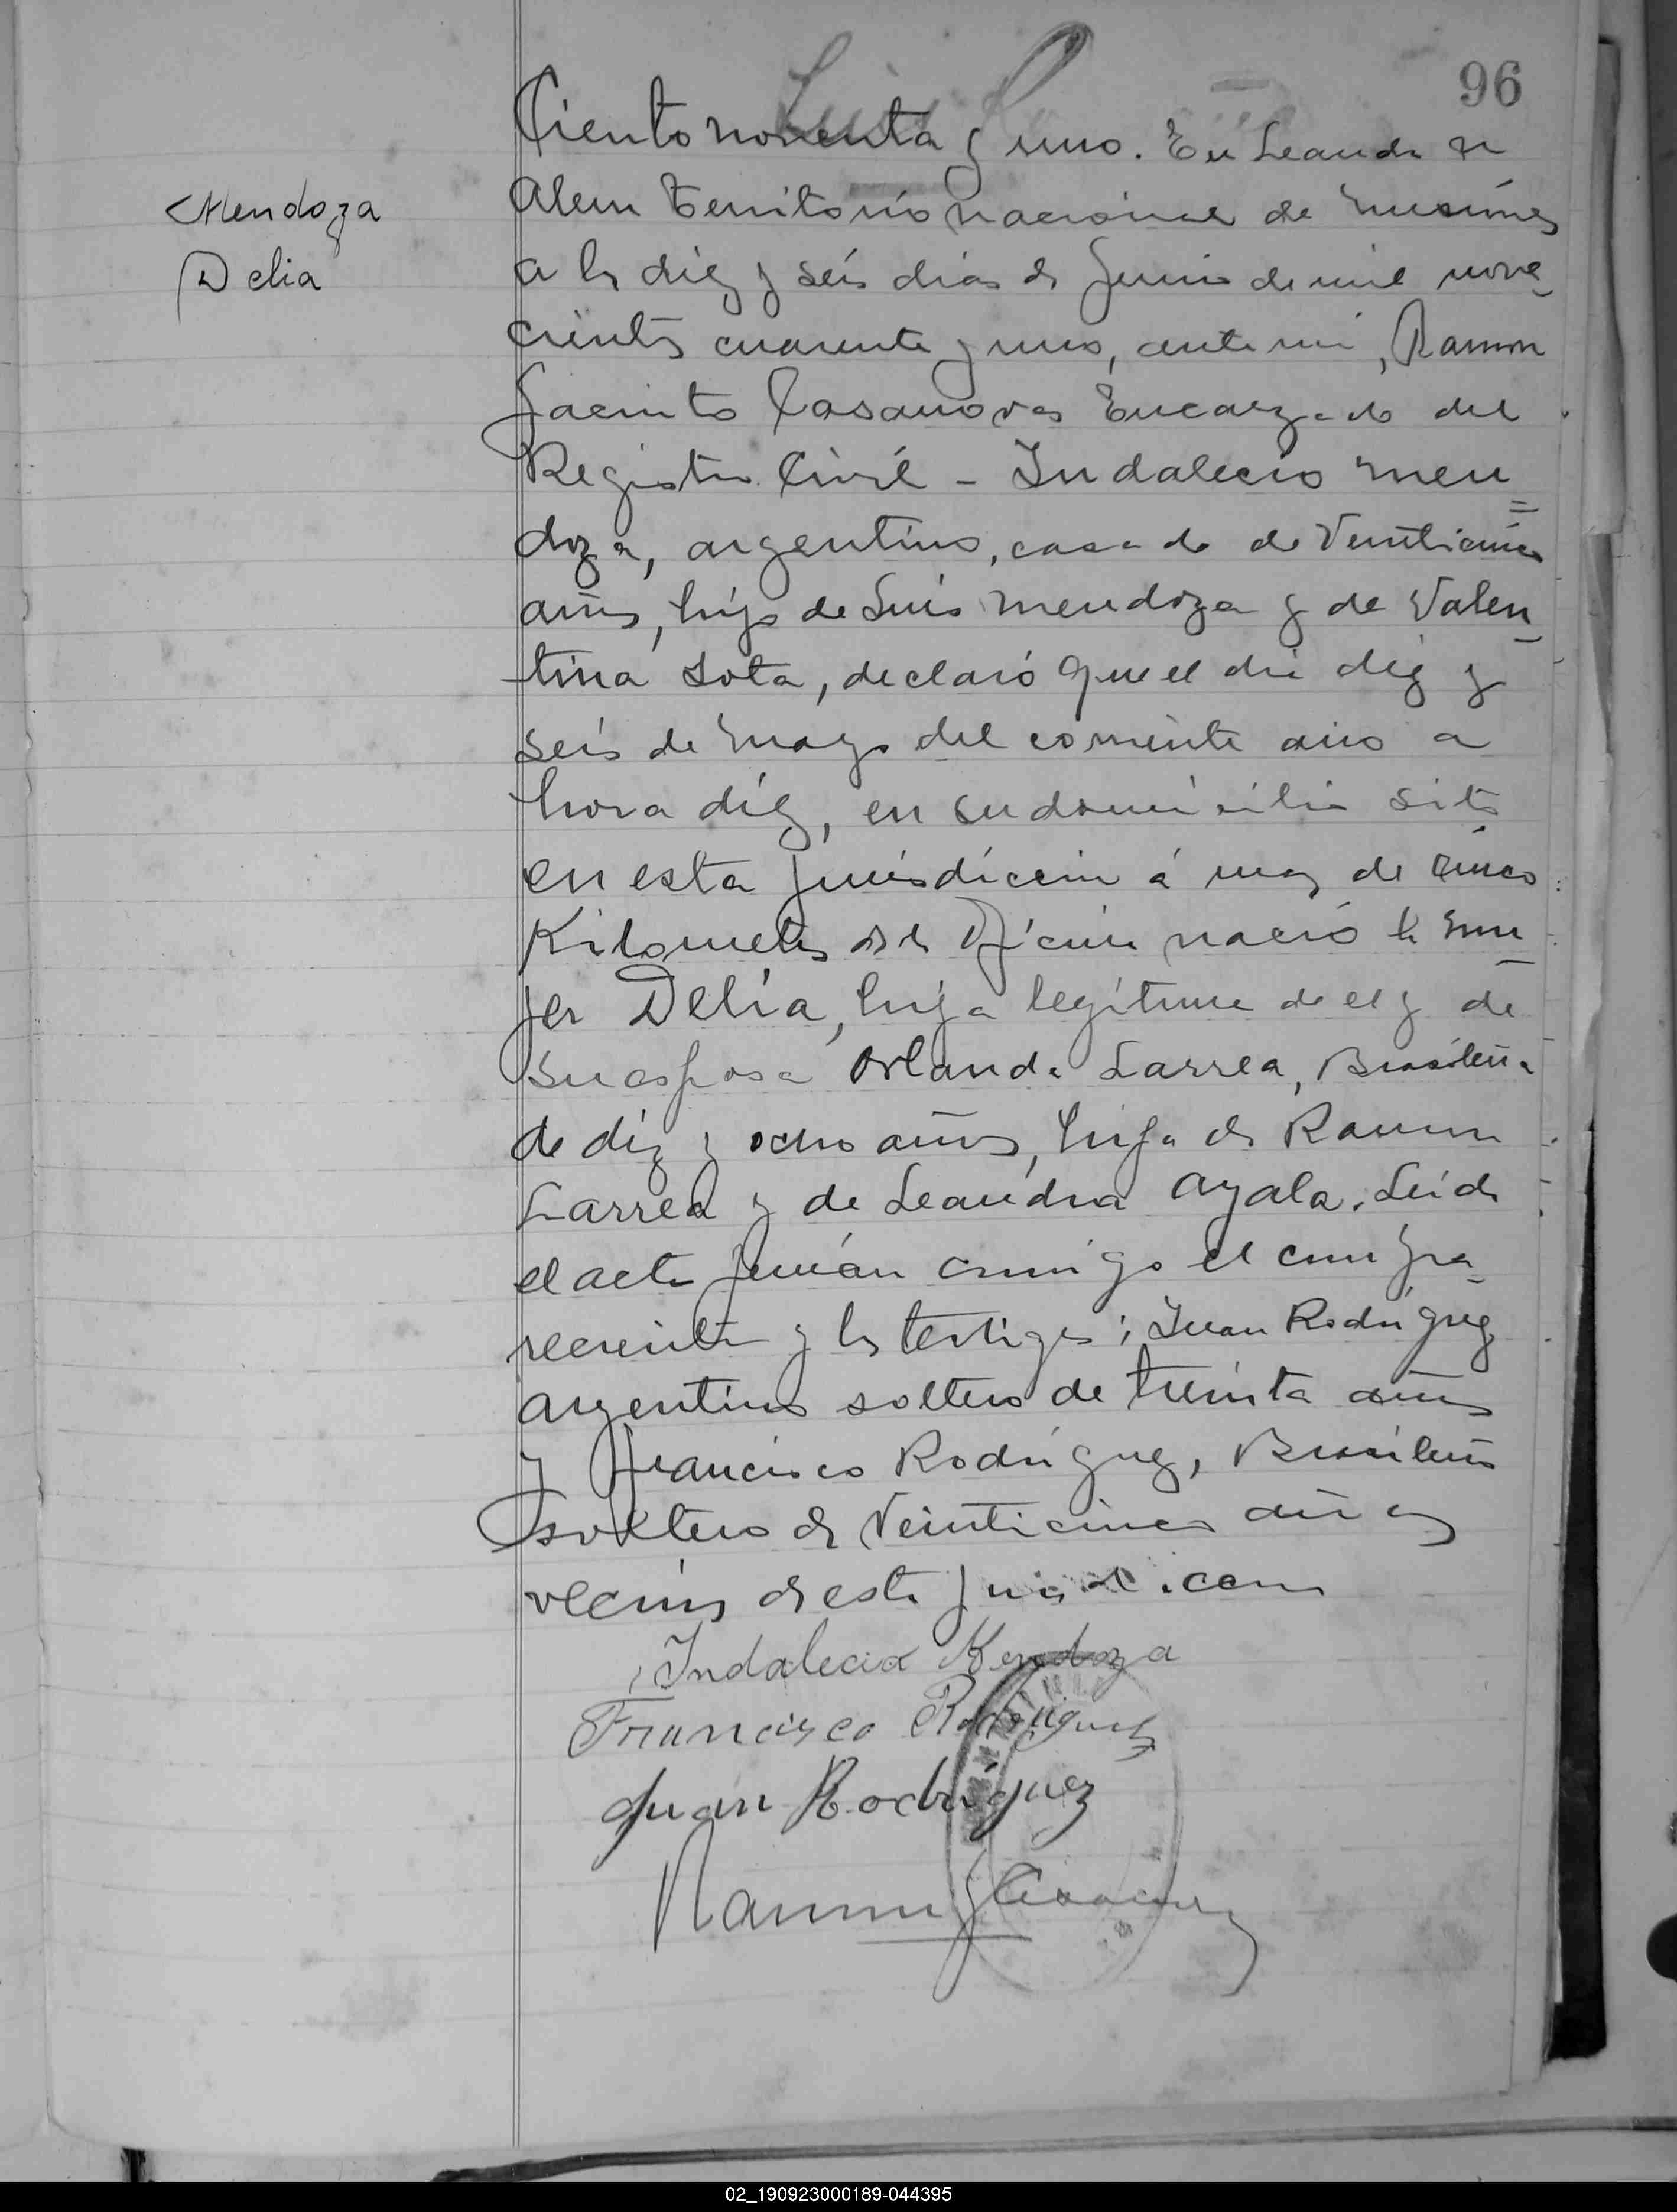 96
Mendoza
Delia
Ciento noventa y uno. En Leandro N
Alem Territorio nacional de Misiones
a los diez y seis dias de Junio de mil nove
cientos cuarenta y uno, ante mi, Ramon
Jacinto Casanovas Encargado del
Registro Civil - Indalecio Men=
doza, argentino, casado de Veinticinco
años, hijo de Luis Mendoza y de Valen
tina Sota, declaró que el dia diez y
seis de Mayo del corriente año a
hora diez, en su domicilio sito
en esta jurisdiccion á mas de cinco
Kilometros de la Oficina nació la mu
jer Delia, hija legitima de el y de
su esposa Orlanda Larrea, Brasileña
de diez y ocho años, hija de Ramon
Larrea y de Leandra Ayala. Leida
el acta firmán conmigo el compa
reciente y los testigos; Juan Rodriguez
argentino soltero de treinta años
y Francisco Rodriguez, Brasileño
soltero de Veinticinco años
vecinos de esta jurisdiccion
Indalecio Mendoza
Francisco Rodriguez
Juan Rodriguez
Ramon J Casanovas
02_190923000189-044395